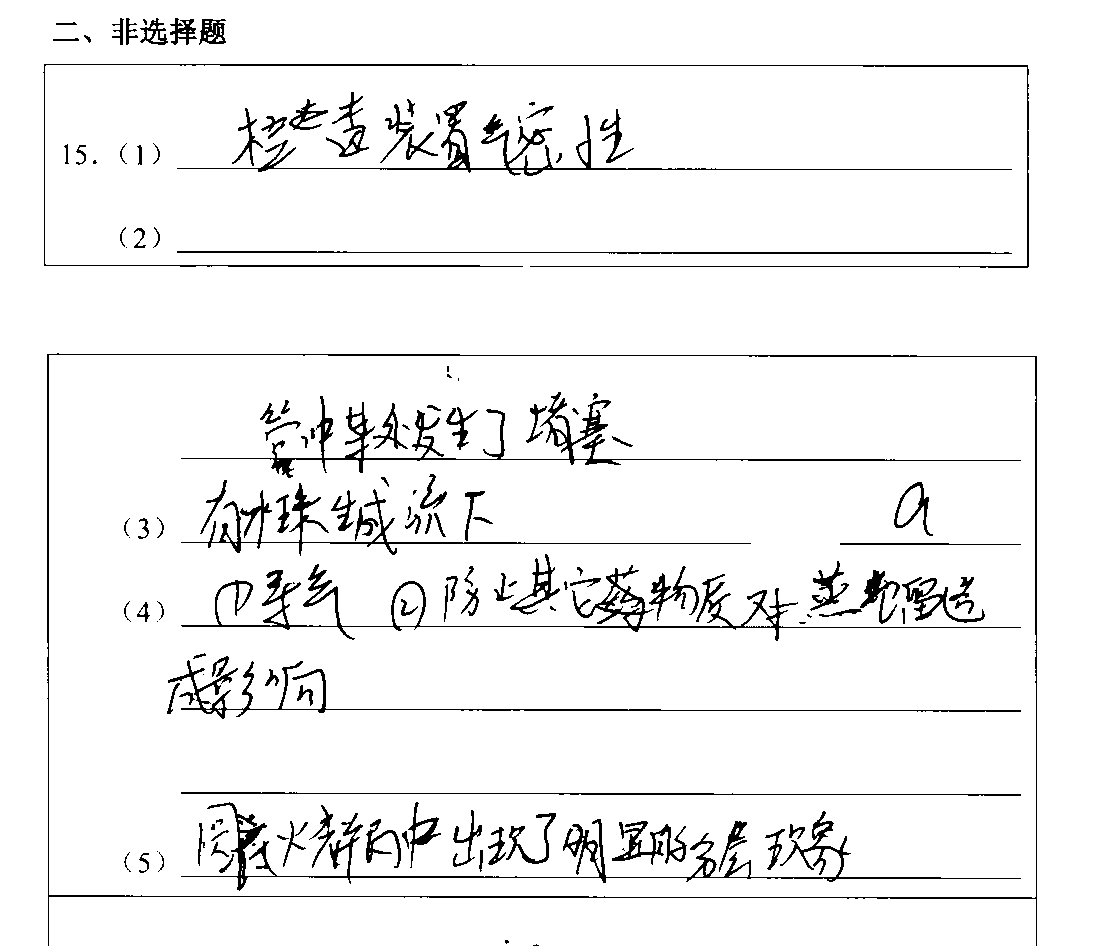 二、非选择题
15.（1）检查装置气密性
（2）
管中某处发生了堵塞
（3）有水珠生成流下 a
（4）①导气 ②防止其它物质对蒸馏造
成影响
（5）圆烧瓶中出现了明显的分层现象